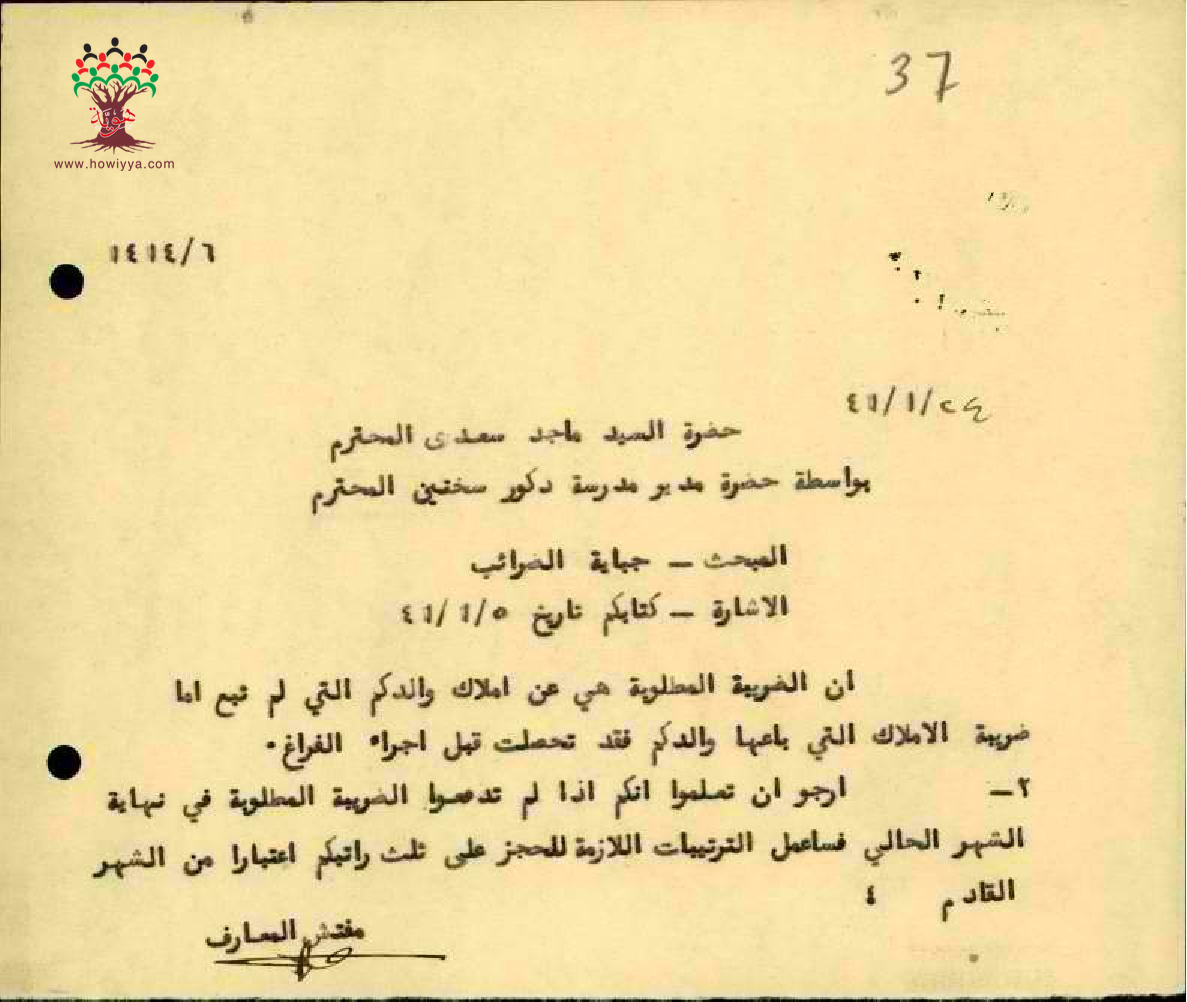 37
هوية
www.howiyya.com
١٤١٤/٦
٤١/١/٢٤
حضرة السيد ماجد سعدى المحترم
بواسطة حضرة مدير مدرسة دكور سخنين المحترم
المبحث — جباية الضرائب
الاشارة — كتابكم تاريخ ٤١/١/٥
ان الضريبة المطلوبة هي عن املاك والدكم التي لم تبع اما
ضريبة الاملاك التي باعها والدكم فقد تحصلت قبل اجراء الفراغ٠
٢— ارجو ان تعلموا انكم اذا لم تدفعوا الضريبة المطلوبة في نهاية
الشهر الحالي فساعمل الترتيبات اللازمة للحجز على ثلث راتبكم اعتبارا من الشهر
القادم ٤
مفتش المعارف